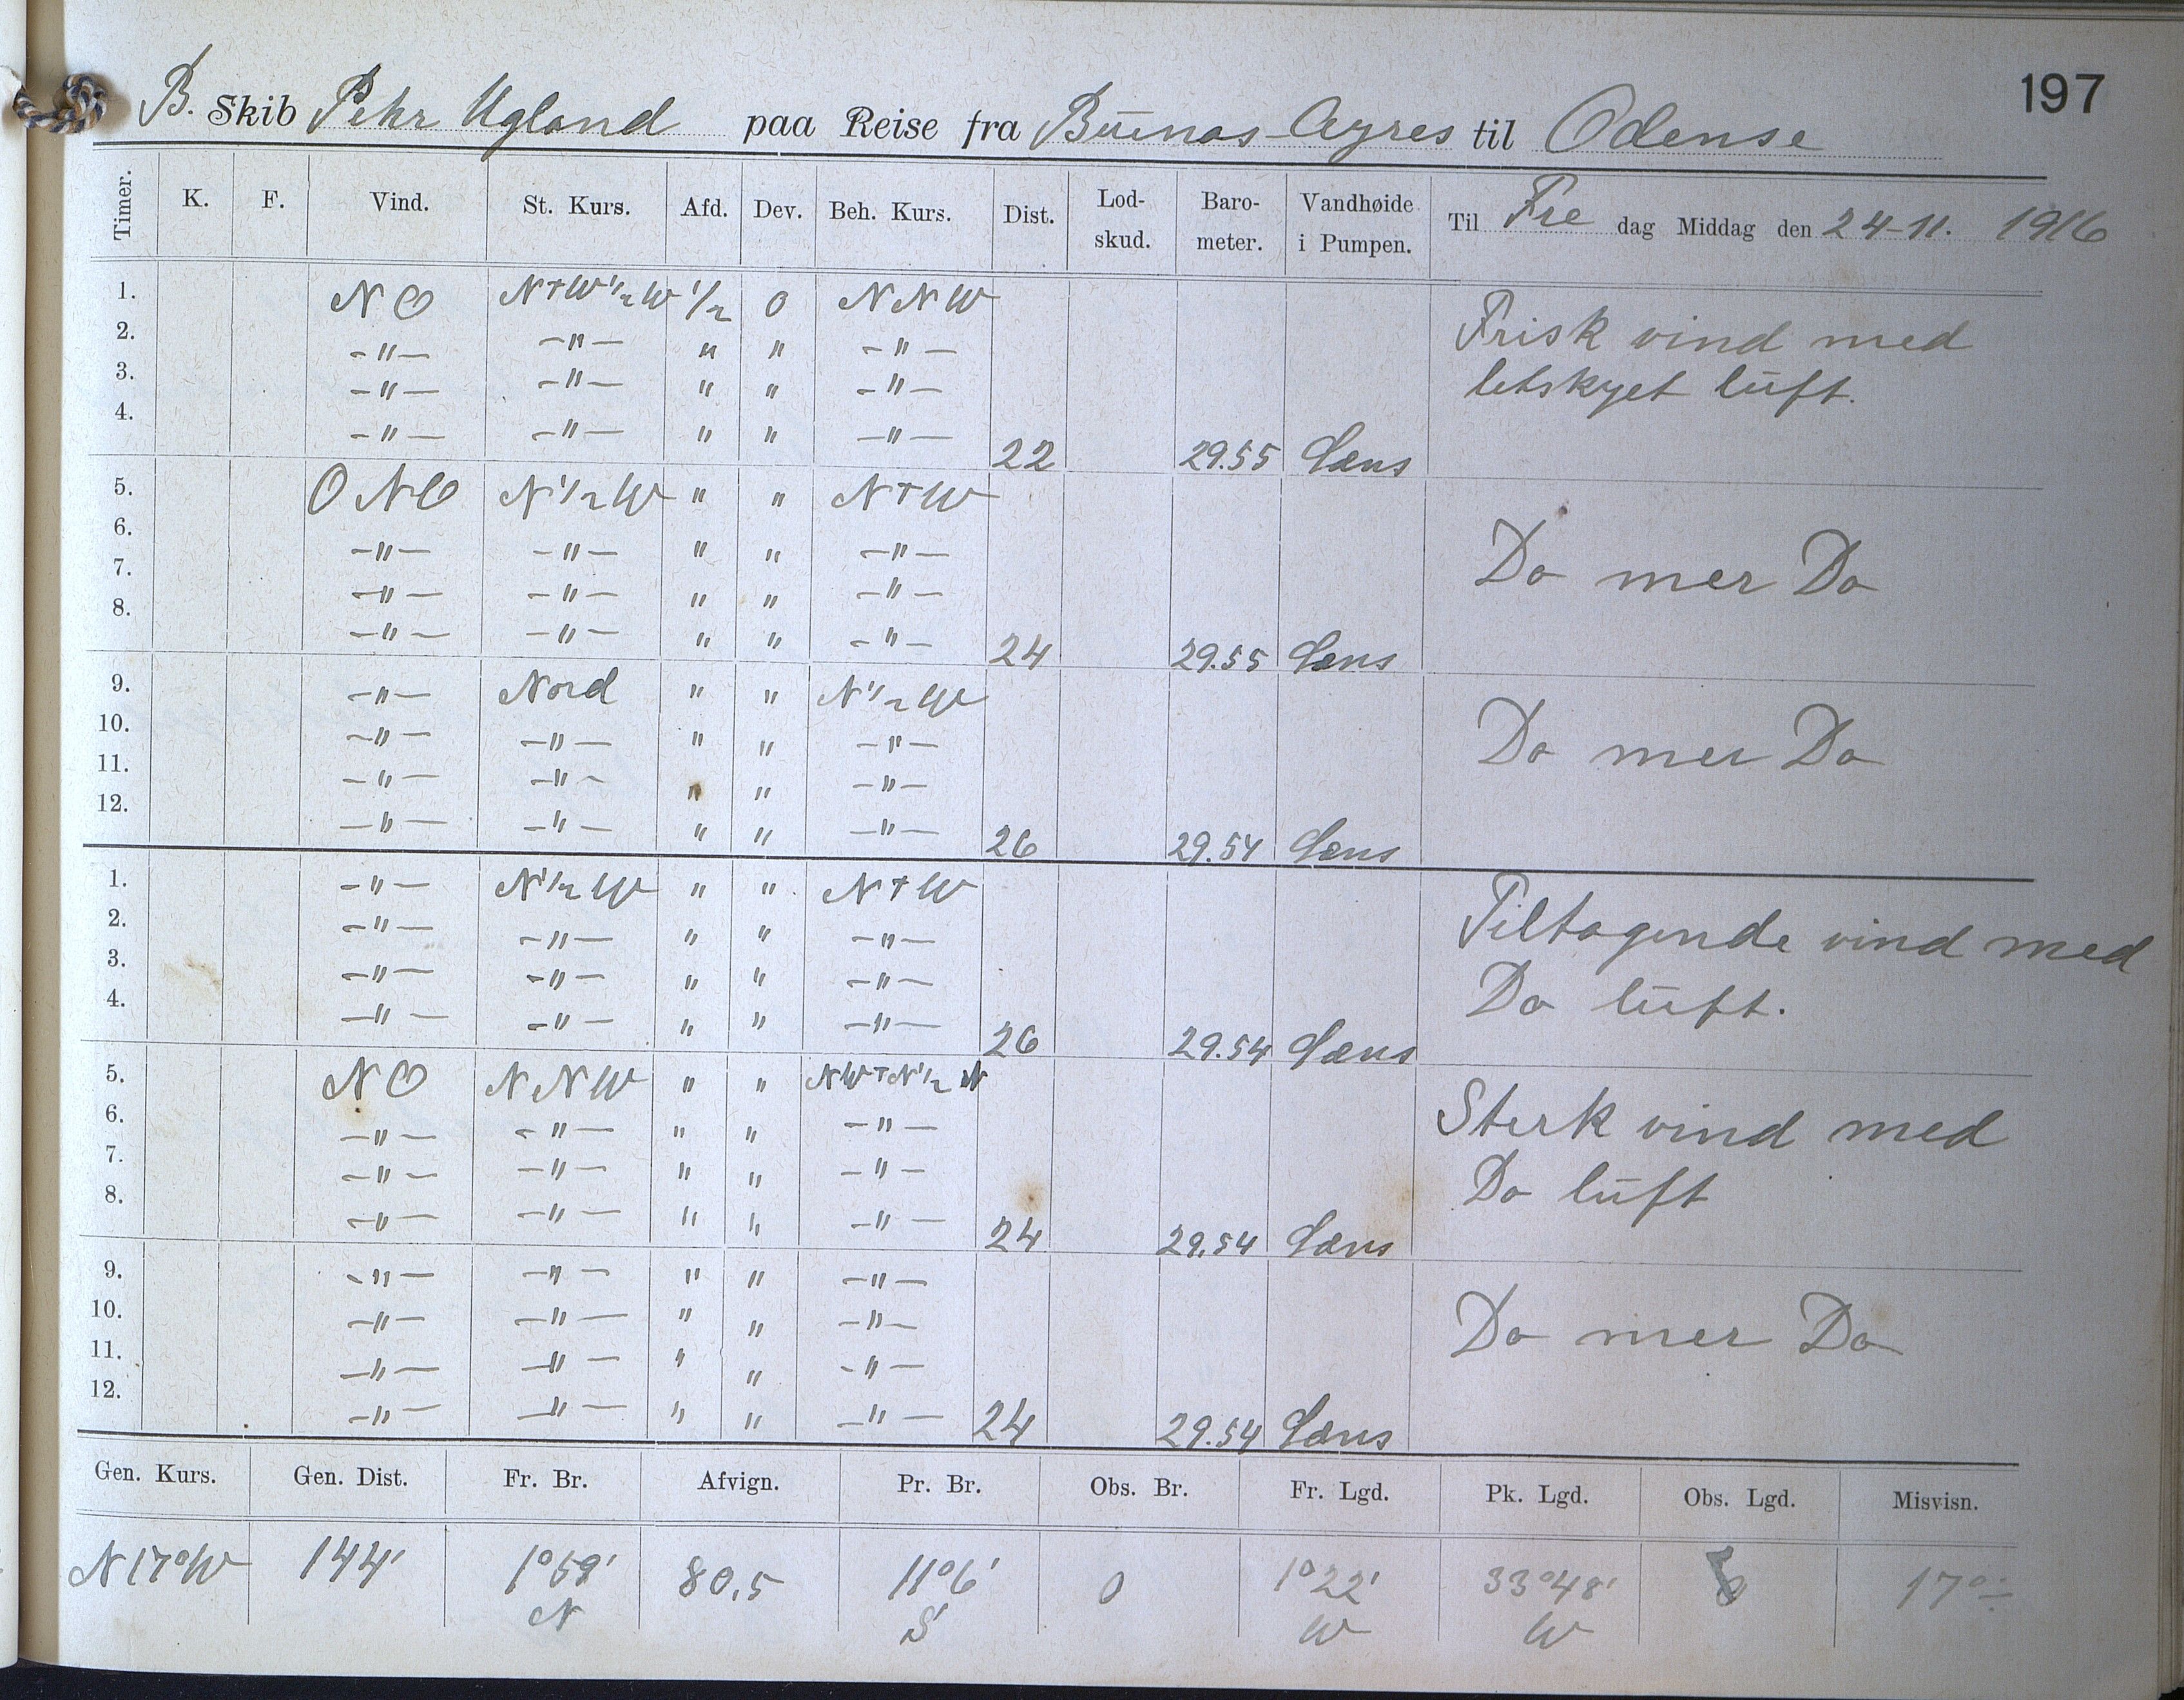 197
B. Skib Pehr Ugland paa Reise fra Buenos-Ayres til Odense
Timer. K. F. Vind. St. Kurs. Afd. Dev. Beh. Kurs. Dist. Lod-skud. Baro-meter. Vandhøide i Pumpen. Til Fre dag Middag den 24-11. 1916
1. NO NTW½W ½ 0 NNW Frisk vind med
2. -"- -"- " " -"- letskyet luft.
3. -"- -"- " " -"-
4. -"- -"- " " -"- 22 29.55 Læns
5. ONO N½W " " NTW
6. -"- -"- " " -"- Do mer Do
7. -"- -"- " " -"-
8. -"- -"- " " -"- 24 29.55 Læns
9. -"- Nord " " N½W
10. -"- -"- " " -"- Do mer Do
11. -"- -"- " " -"-
12. -"- -"- " " -"- 26 29.54 Læns
1. -"- N½W " " NTW Tiltagende vind med
2. -"- -"- " " -"-
3. -"- -"- " " -"- Do luft.
4. -"- -"- " " -"- 26 29.54 Læns
5. NO NNW " " NWTN½N Sterk vind med
6. -"- -"- " " -"-
7. -"- -"- " " -"- Do luft
8. -"- -"- " " -"- 24 29.54 Læns
9. -"- -"- " " -"-
10. -"- -"- " " -"- Do mer Do
11. -"- -"- " " -"-
12. -"- -"- " " -"- 24 29.54 Læns
Gen. Kurs. Gen. Dist. Fr. Br. Afvign. Pr. Br. Obs. Br. Fr. Lgd. Pk. Lgd. Obs. Lgd. Misvisn.
N17°W 144' 1°59' 80,5 11°6' 0 1°22' 33°48' 17°
N S W W